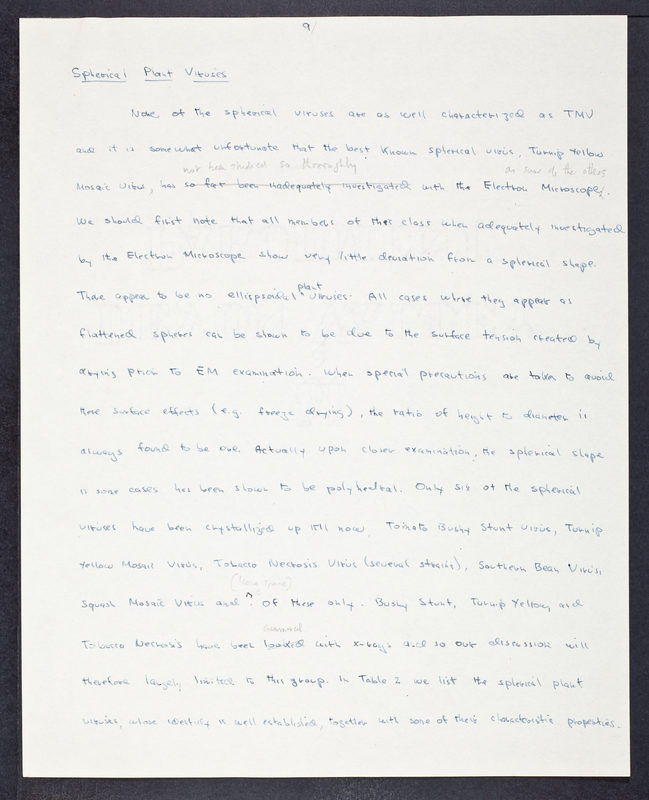 9/
Spherical Plant Viruses
None of the spherical viruses are as well characterized as TMV
and it is somewhat unfortunate that the best known spherical virus, Turnip Yellow
not been studied so thoroughly as some of the others
Mosaic Virus, has so far been inadequately investigated with the Electron Microscope.
We should first note that all members of this class when adequately investigated
by the Electron Microscope show very little deviation from a spherical shape.
There appear to be no ellipsoidal plant viruses. All cases where they appear as
flattened spheres can be shown to be due to the surface tension created by
drying prior to EM examination. When special precautions are taken to avoid
these surface effects (e.g. freeze drying), the ratio of height to diameter is
always found to be one. Actually upon closer examination, the spherical shape
in some cases has been shown to be polyhedral. Only six of the spherical
viruses have been crystallized up till now Tomato Bushy Stunt virus, Turnip
Yellow Mosaic Virus, Tobacco Necrosis Virus (several strains), Southern Bean Virus,
(leave space)
Squash Mosaic Virus and ? Of these only Bushy Stunt, Turnip Yellow, and
examined
Tobacco Necrosis have been looked with x-rays and so our discussion will
therefore largely limited to this group. In Table 2 we list the spherical plant
viruses, whose identity is well established, together with some of their characteristic properties.